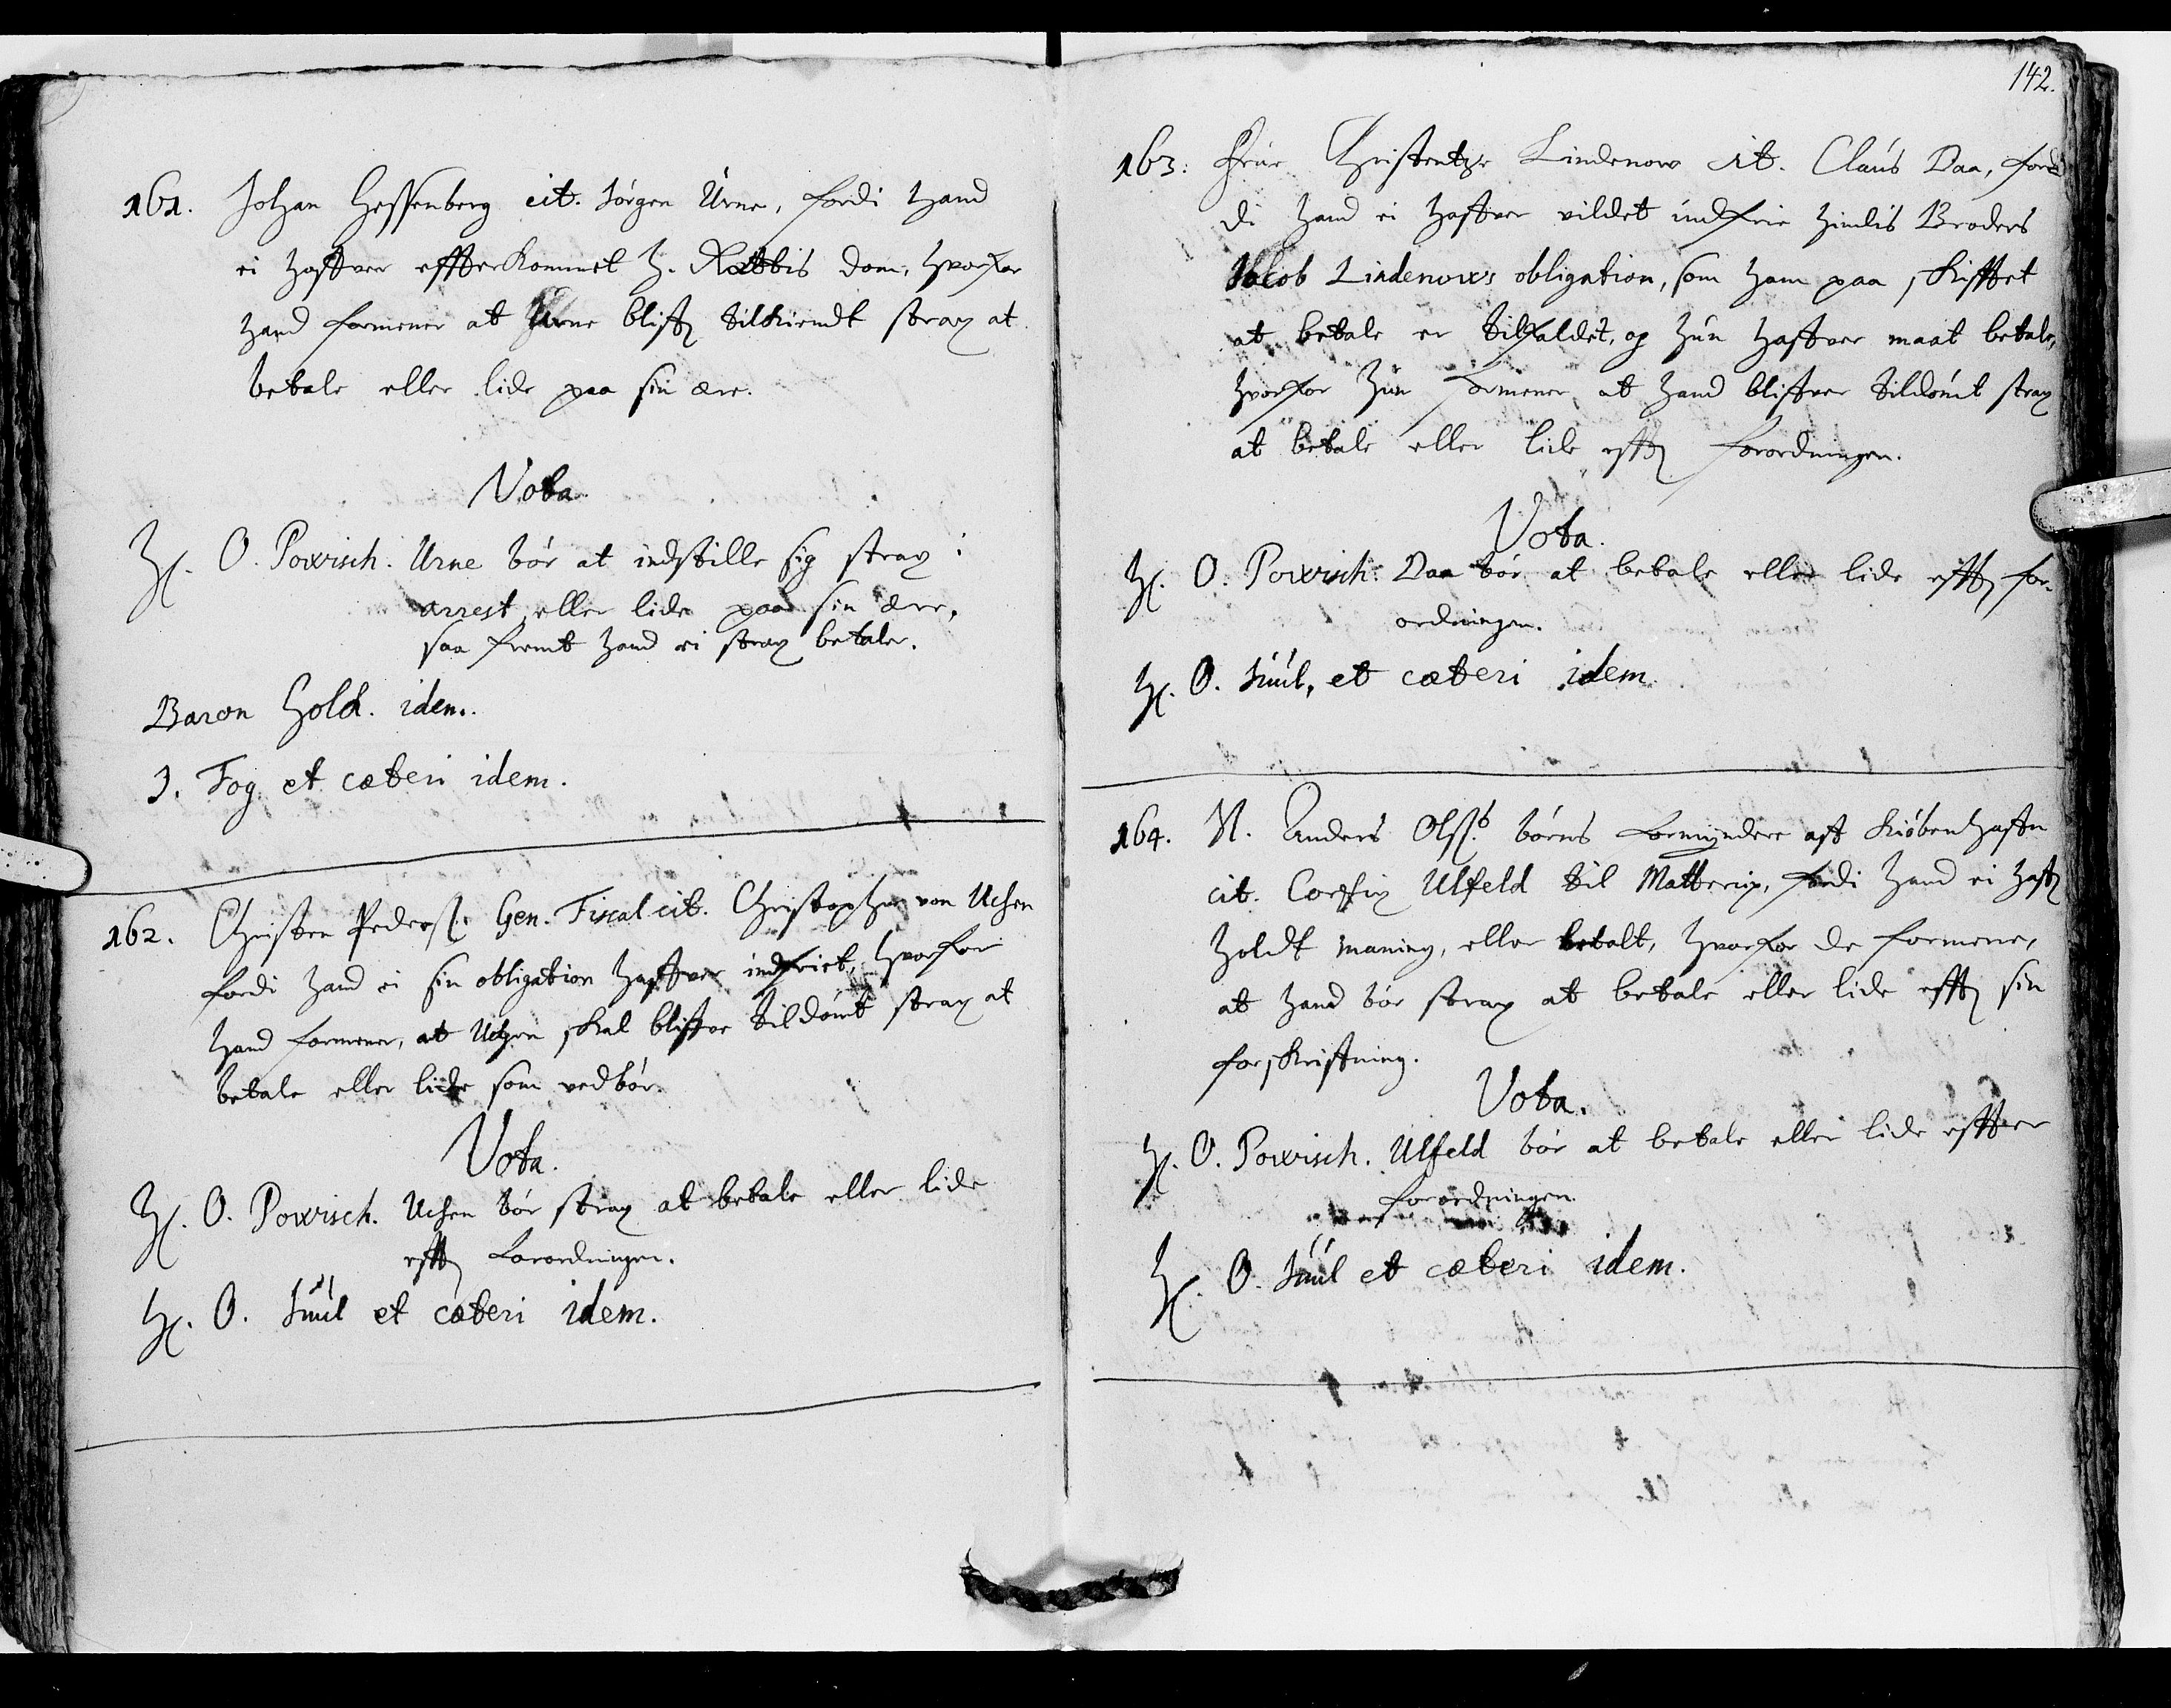 161. Johan Hessenberg cit. Jórgen Urne, fordi hand
ei haffver effterkommet H. Rettis dom, hvorfor
hand formener at Urne bliffr tilkiendt strax at
betale eller lide paa sin ære.
Vota.
H. O. Powisch. Urne bór at indstille sig strax i
arrest, eller lide paa sin ære,
saa fremt hand ei strax betaler.
Baron Holck. idem.
J. Fog et cæteri idem.
162. Christen Peders: Gen. Fiscal cit. Christopher von
fordi hand ei sin obligation haffver indfriet, hvorfor
hand formener, at skal bliffve tildómt strax at
betale eller lide som vedbór.
Vota.
H. O. Powisch. bór strax at betale eller lide
efftr Forordningen.
H. O. Juul et cæteri idem.
142.
163. Frue Christentze Lindenow cit. Claus Daa, for=
di hand ei haffver vildet indfrie hindis Broders
Jakob Lindenows obligation, som ham paa skifftet
at betale er tilfaldet, og hun haffver maat betale,
hvorfor hun formener, at hand bliffver tildómt strax
at betale eller lide efftr Forordningen.
Vota.
H. O. Powisch. Daa bór at betale eller lide efftr for-
ordningen.
H. O. Juul, et cæteri idem.
164. Anders Ols: bórns Formyndere aff Kióbenhaffn
cit. Corfix Ulfeld til Mattrup, fordi hand ei haffr
holdt maning, eller betalt, hvorfor de formene,
at hand bór strax at betale eller lide efftr sin
forskriffning.
Vota.
H. O. Powisch. Ulfeld bór at betale eller lide effter
forordningen.
H. O. Juul et cæteri idem.